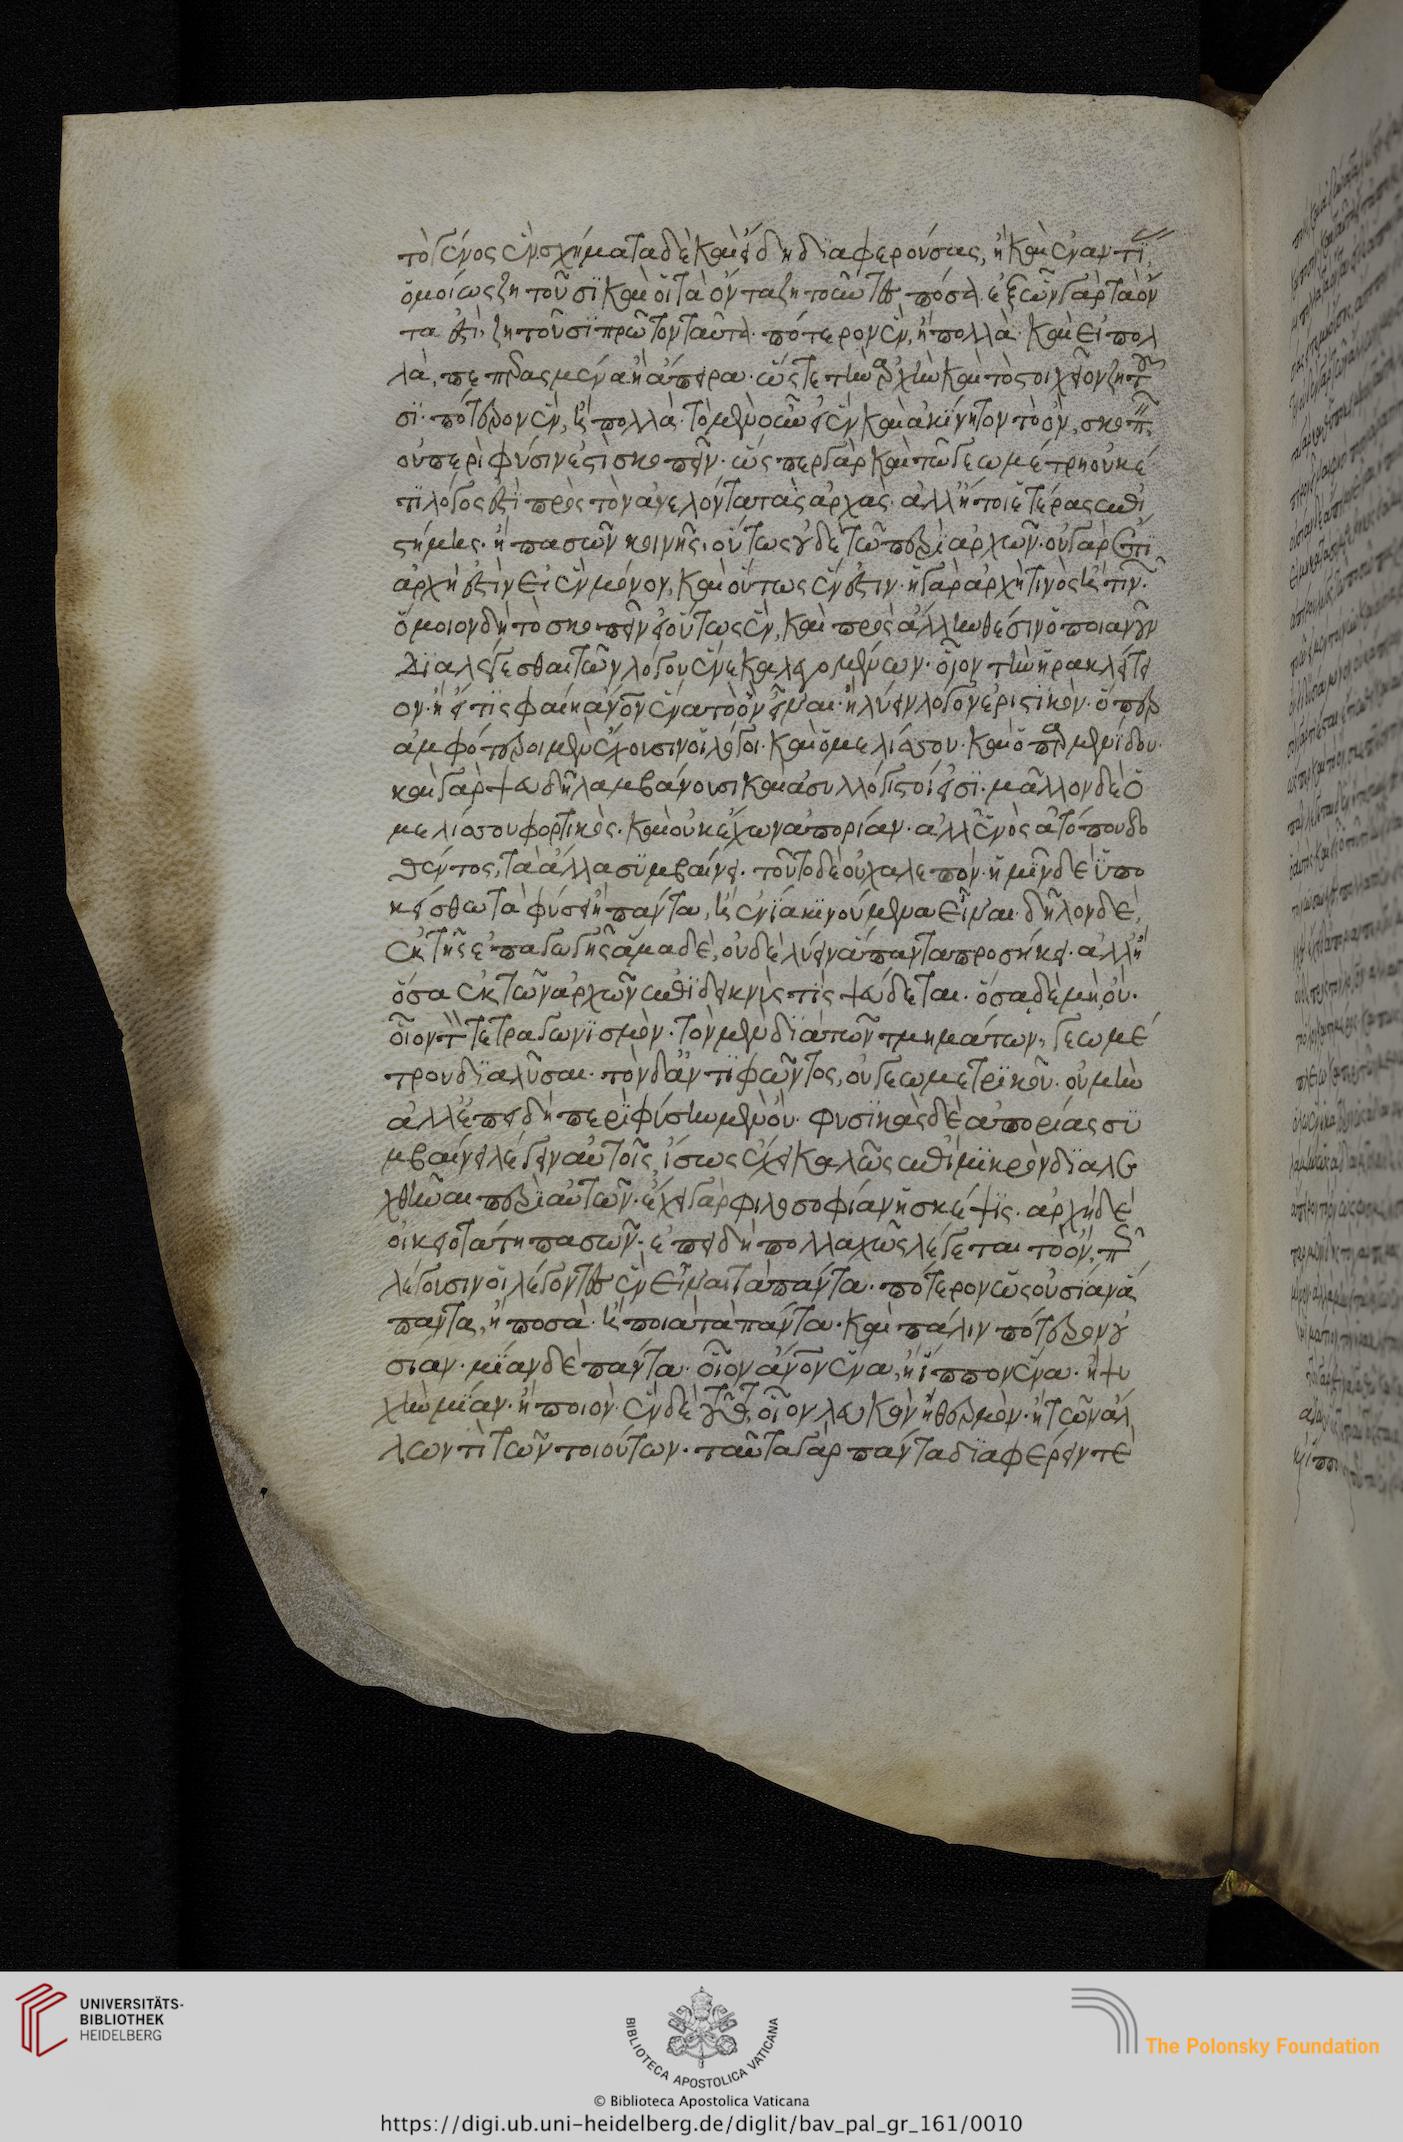 τὸ γένος ἓν, σχήματα δὲ καὶ εἴδη διαφερούσας, ἢ καὶ ἐναντί
ὁμοίως ζητοῦσι καὶ οἱ τὰ ὄντα ζητοῦντες πόσα. ἐξ ὧν γὰρ τὰ ὄν
τα ἐστὶ, ζητοῦσι πρῶτον ταῦτα. πότερον ἓν, ἢ πολλά. καὶ εἰ πολ
λὰ, πεπερασμένα ἢ ἄπειρα. ὥστε τὴν ἀρχὴν καὶ τὸ στοιχεῖον ζητοῦ
σι. πότερον ἓν, ἢ πολλά. τὸ μὲν οὖν εἰ ἓν καὶ ἀκίνητον τὸ ὂν, σκοπεῖν
οὐ περὶ φύσιν ἐστὶ σκοπεῖν. ὥσπερ γὰρ καὶ τῶ γεωμέτρη οὐκέ
τι λόγος ἐστὶ πρὸς τὸν ἀνελόντα τὰς ἀρχάς. ἀλλ' ἤτοι ἑτέρας ἐπι
στήμης. ἢ πασῶν κοινῆς. οὕτως οὐδὲ τῶ περὶ ἀρχῶν. οὐ γὰρ ἔτι
ἀρχή ἐστιν εἰ ἓν μόνον, καὶ οὕτως ἕν ἐστιν. ἡ γὰρ ἀρχὴ τινὸς ἢ τινῶν.
ὅμοιον δὴ τὸ σκοπεῖν εἰ οὕτως ἓν, καὶ πρὸς ἄλλην θέσιν ὁποιανοῦν
διαλέγεσθαι τῶν λόγου ἕνεκα λεγομένων. οἷον τὴν ἡρακλείτει
ον. ἢ εἴ τις φαίη ἄνον ἕνα τὸ ὂν εἶναι. ἢ λύειν λόγον ἐριστικόν. ὅπερ
ἀμφότεροι μὲν ἔχουσιν οἱ λόγοι. καὶ ὁ μελίσσου. καὶ ὁ παρμενίδου.
καὶ γὰρ ψευδῆ λαμβάνουσι καὶ ἀσυλλόγιστοί εἰσι. μᾶλλον δὲ ὁ
μελίσσου φορτικὸς. καὶ οὐκ ἔχων ἀπορίαν. ἀλλ' ἑνὸς ἀτόπου δο
θέντος, τὰ ἄλλα συμβαίνει. τοῦτο δὲ οὐ χαλεπόν. ἡμῖν δὲ ὑπο
κείσθω τὰ φύσει ἢ πάντα, ἢ ἔνια κινούμενα εἶναι. δῆλον δὲ,
ἐκ τῆς ἐπαγωγῆς ἅμα δὲ, οὐδὲ λύειν ἅπαντα προσήκει. ἀλλ' ἢ
ὅσα ἐκ τῶν ἀρχῶν ἐπιδεικνύς τις ψεύδεται. ὅσα δὲ μὴ, οὔ.
οἷον τὸν τετραγωνισμὸν. τὸν μὲν διὰ τῶν τμημάτων, γεωμέ
τρου διαλῦσαι. τὸν δ' ἀντιφῶντος, οὐ γεωμετρικοῦ. οὐ μὴν
ἀλλ' ἐπειδὴ περὶ φύσεως μὲν οὔ. φυσικὰς δὲ ἀπορίας συ
μβαίνει λέγειν αὐτοῖς, ἴσως ἔχει καλῶς ἐπὶ μικρὸν διαλε
χθῆναι περὶ αὐτῶν. ἔχει γὰρ φιλοσοφίαν ἡ σκέψις. ἀρχὴ δὲ
οἰκειοτάτη πασῶν. ἐπειδὴ πολλαχῶς λέγεται τὸ ὂν, πῶς
λέγουσιν οἱ λέγοντες ἓν εἶναι τὰ πάντα. πότερον ὡς οὐσίαν ἅ
παντα, ἢ ποσὰ. ἢ ποιὰ τὰ πάντα. καὶ πάλιν πότερον οὐ
σίαν. μίαν δὲ πάντα. οἷον ἄνον ἕνα, ἢ ἵππον ἕνα. ἢ ψυ
χὴν μίαν. ἢ ποιὸν. ἓν δὲ τοῦτο, οἷον λευκὸν ἢ θερμὸν. ἢ τῶν ἀλ
λων τὶ τῶν τοιούτων. ταῦτα γὰρ πάντα διαφέρειν τε
UNIVERSITÄTS-
BIBLIOTHEK
HEIDELBERG
BIBLIOTECA APOSTOLICA VATICANA
© Biblioteca Apostolica Vaticana
https://digi.ub.uni-heidelberg.de/diglit/bav_pal_gr_161/0010
The Polonsky Foundation